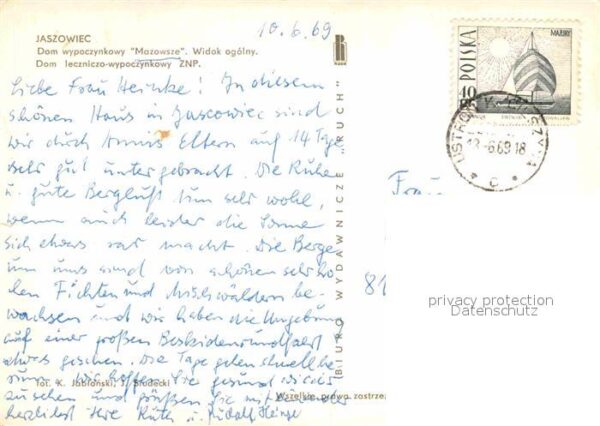 10.6.69
JASZOWIEC
Dom wypoczynkowy "Mazowsze". Widok ogólny.
Dom leczniczo-wypoczynkowy ZNP.
Liebe Frau Heinke! In diesem
schönen Haus in Jascowiec sind
wir durch Eltern auf 14 Tage
sehr gut untergebracht. Die Ruhe
u. gute Bergluft tun sehr wohl,
wenn auch leider die Sonne
sich etwas rar macht. Die Berge
um uns sind von schönen sehr ho-
hen Fichten und Mischwäldern be-
wachsen und wir haben die Umgebung
auf einer großen Beskidenrundfahrt
etwas gesehen. Die Tage gehen schnell he-
rum. Wir hoffen Sie gesund wieder
zu sehen und grüßen Sie mit
herzlichst Ihre Ruth u. Rudolf
fot. K. Jabłoński, J. Siudecki
Wszelkie prawa zastrze
BIURO WYDAWNICZE „RUCH”
RUCH
POLSKA
10 GR
MALUKI
USTROŃ
-6.69.18
c
Frau
81
privacy protection
Datenschutz